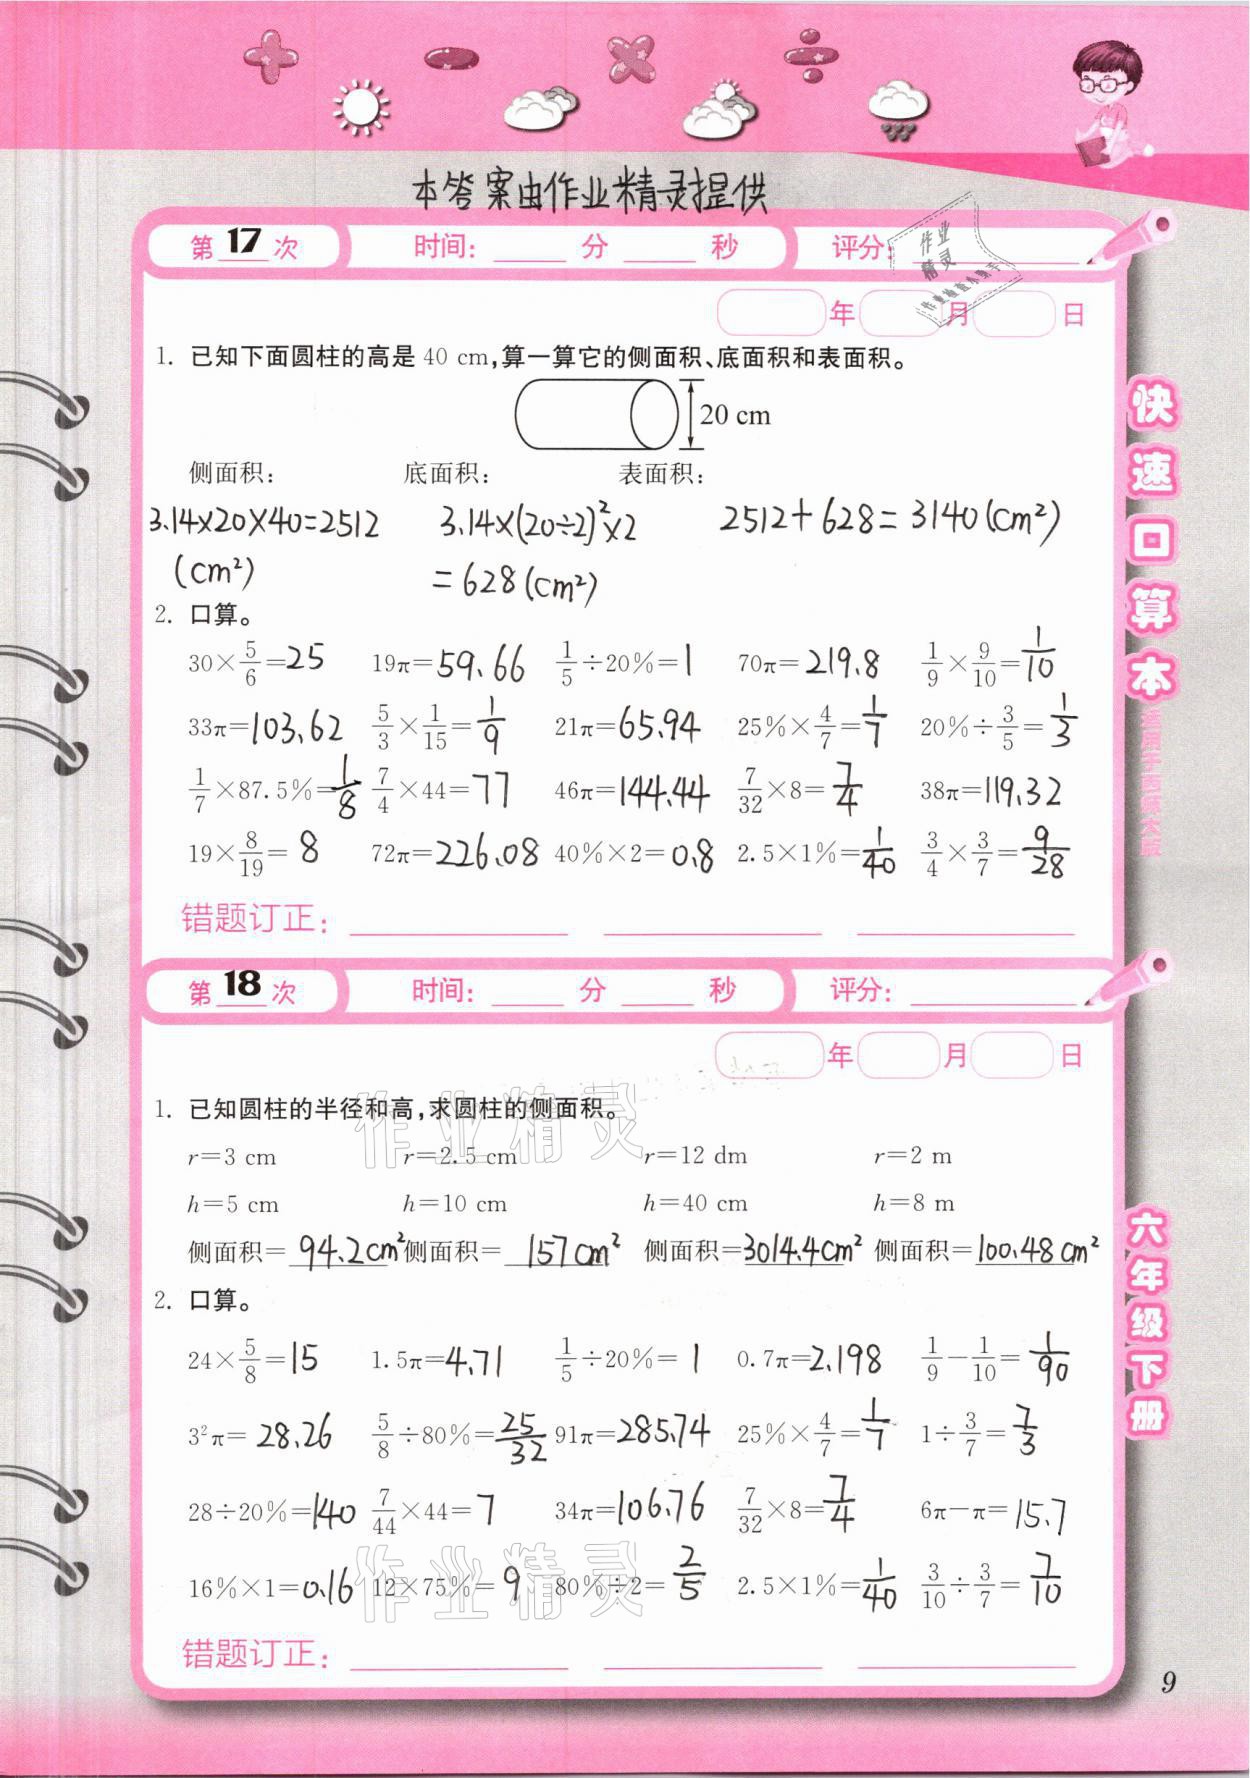 本答案由作业精灵提供
第 17 次 时间: 分 秒 评分:
作业精灵
年 月 日
1. 已知下面圆柱的高是 40 cm,算一算它的侧面积、底面积和表面积。
20 cm
侧面积: 底面积: 表面积:
3.14×20×40=2512 3.14×(20÷2)²×2 2512+628=3140(cm²)
(cm²) =628(cm²)
2. 口算。
30×5/6=25 19π=59.66 1/5÷20%=1 70π=219.8 1/9×9/10=1/10
33π=103.62 5/3×1/15=1/9 21π=65.94 25%×4/7=1/7 20%÷3/5=1/3
1/7×87.5%=1/8 7/4×44=77 46π=144.44 7/32×8=7/4 38π=119.32
19×8/19=8 72π=226.08 40%×2=0.8 2.5×1%=1/40 3/4×3/7=9/28
错题订正:
第 18 次 时间: 分 秒 评分:
年 月 日
1. 已知圆柱的半径和高,求圆柱的侧面积。
r=3 cm r=2.5 cm r=12 dm r=2 m
h=5 cm h=10 cm h=40 cm h=8 m
侧面积=94.2cm² 侧面积=157cm² 侧面积=3014.4cm² 侧面积=100.48cm²
2. 口算。
24×5/8=15 1.5π=4.71 1/5÷20%=1 0.7π=2.198 1/9−1/10=1/90
3²π=28.26 5/8÷80%=25/32 91π=285.74 25%×4/7=1/7 1÷3/7=7/3
28÷20%=140 7/44×44=7 34π=106.76 7/32×8=7/4 6π−π=15.7
16%×1=0.16 12×75%=9 80%÷2=2/5 2.5×1%=1/40 3/10÷3/7=7/10
错题订正:
作业精灵
作业精灵
快速口算本
适用于西师大版
六年级下册
9